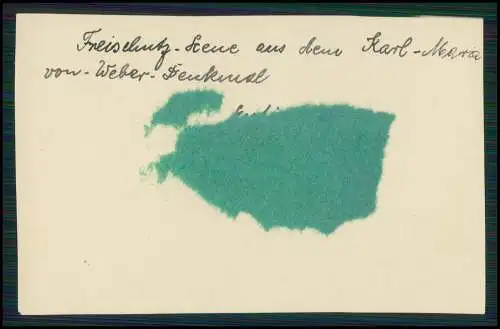 Freischutz-Scene aus dem Karl-Maria
von-Weber-Denkmal